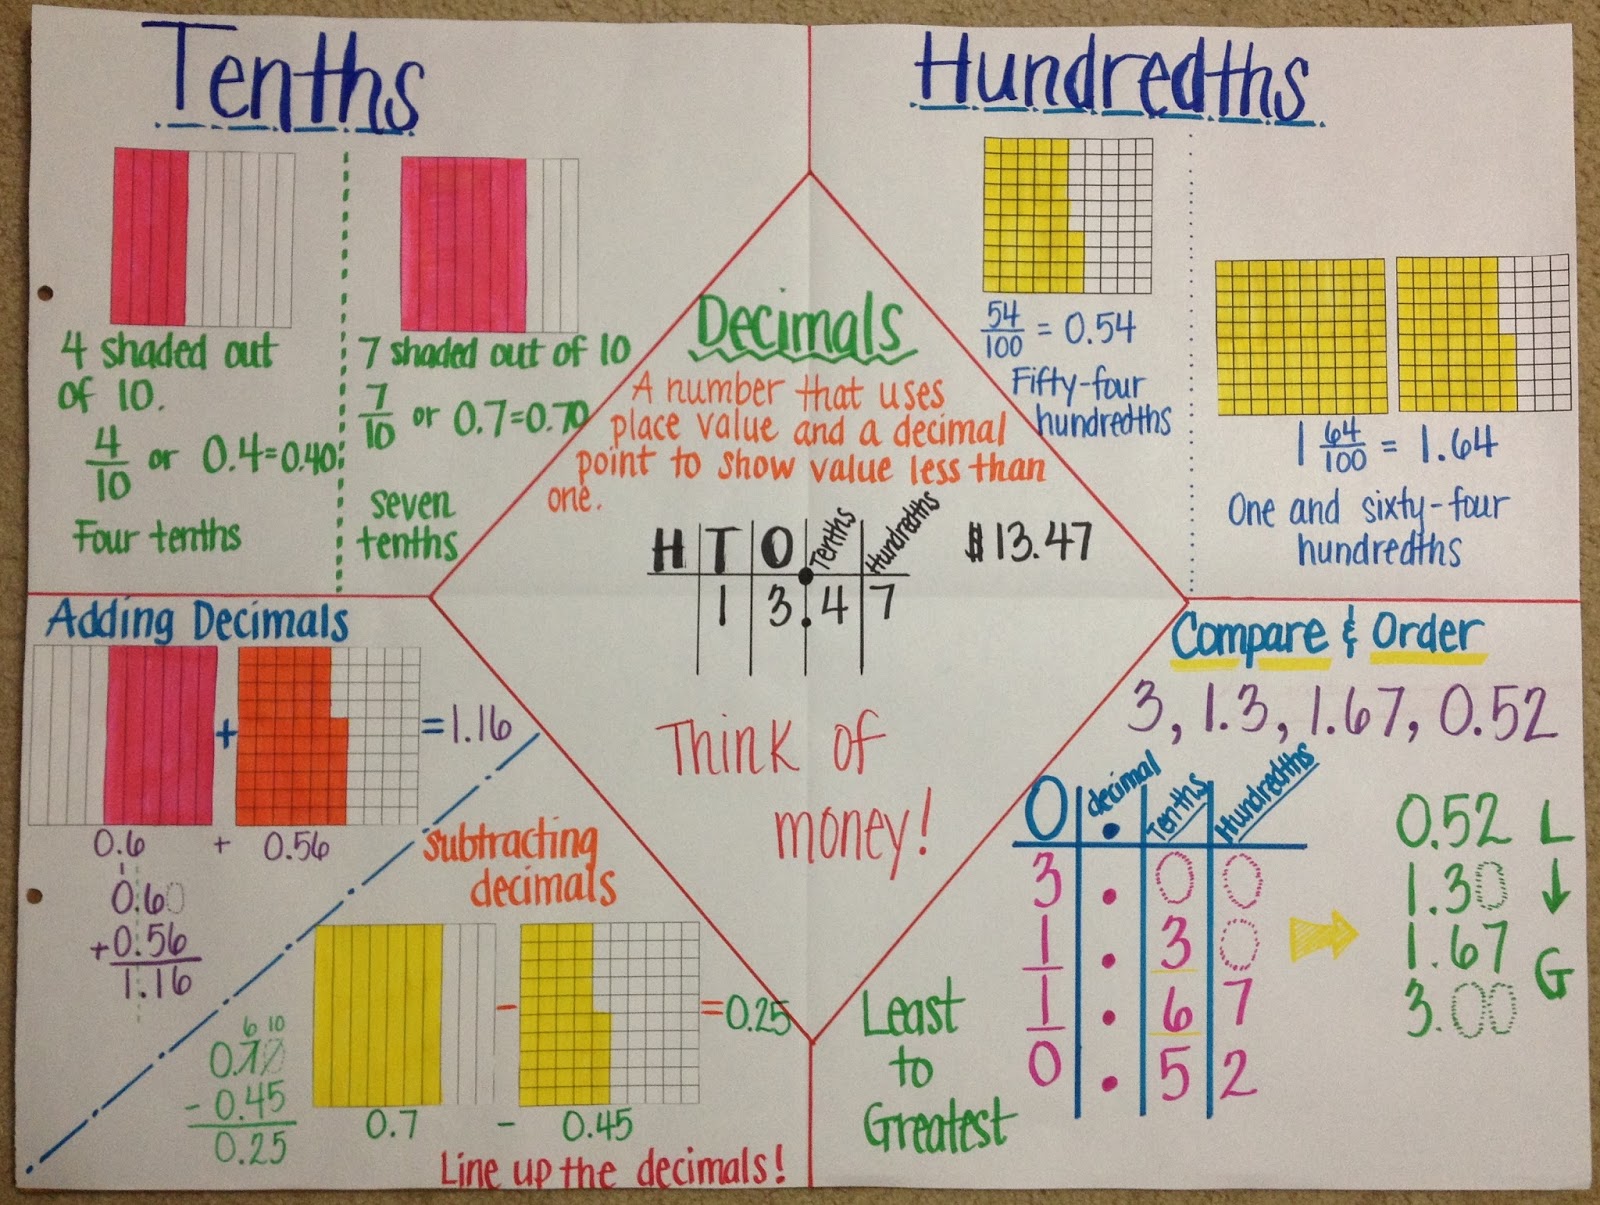 Tenths
4 shaded out
of 10.
4/10 or 0.4=0.40
Four tenths
7 shaded out of 10
7/10 or 0.7=0.70
seven
tenths
Hundredths
54/100 = 0.54
Fifty-four
hundredths
1 64/100 = 1.64
One and sixty-four
hundredths
Decimals
A number that uses
place value and a decimal
point to show value less than
one.
H T O . Tenths Hundredths
1 3 . 4 7
$13.47
Think of
money!
Adding Decimals
+ =1.16
0.6 + 0.56
0.60
+0.56
1.16
subtracting
decimals
- =0.25
0.7 - 0.45
6 10
0.70
- 0.45
0.25
Line up the decimals!
Compare & Order
3, 1.3, 1.67, 0.52
O . decimal Tenths Hundredths
3 . 0 0
1 . 3 0
1 . 6 7
0 . 5 2
Least
to
Greatest
0.52 L
1.30 ↓
1.67
3.00 G